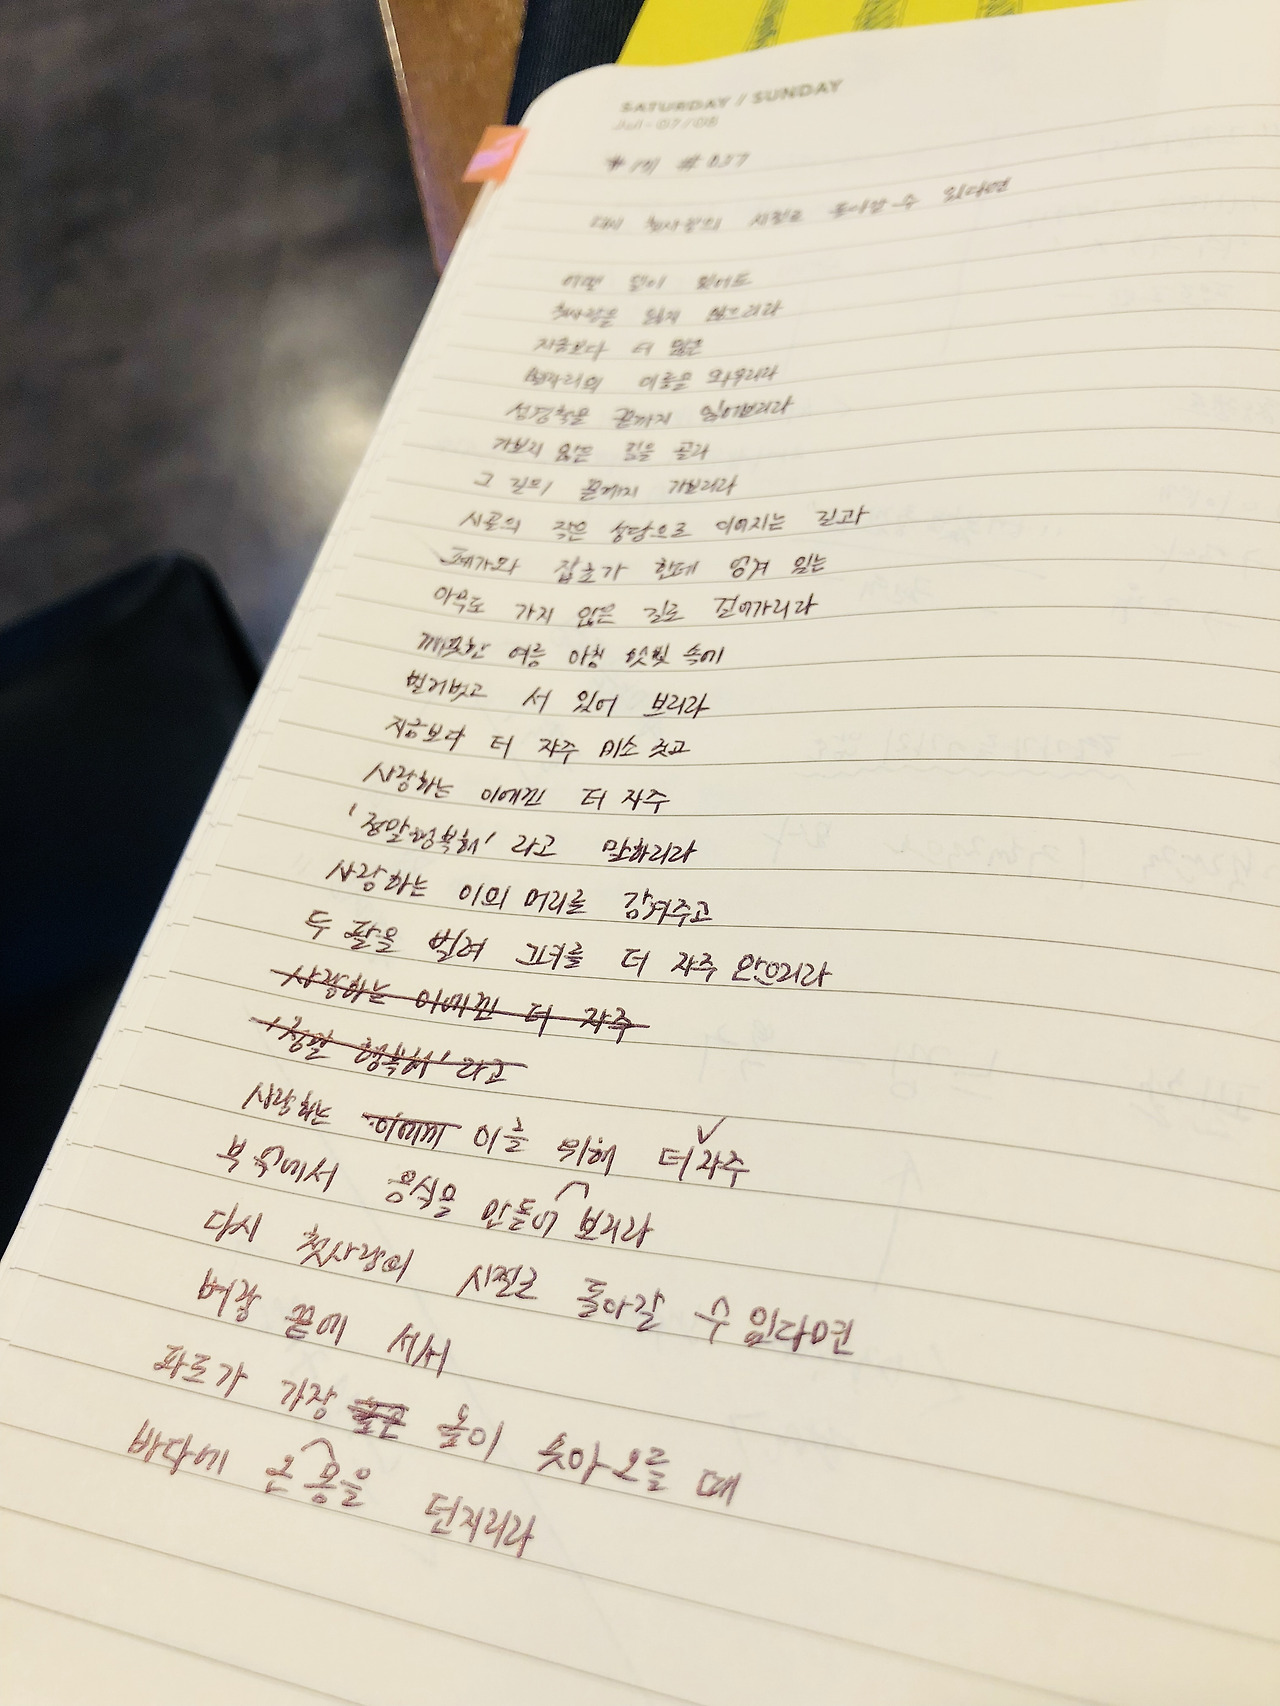 SATURDAY // SUNDAY
Jul - 07/08
# 057
다시 첫사랑의 시절로 돌아갈 수 있다면
어떤 일이 있어도
첫사랑을 잃지 않으리라
지금보다 더 많은
별자리의 이름을 외우리라
성경책을 끝까지 읽어보리라
가보지 않은 길을 골라
그 길의 끝까지 가보리라
시골의 작은 성당으로 이어지는 길과
폐가와 잡초가 한데 엉겨 있는
아무도 가지 않은 길로 걸어가리라
깨끗한 여름 아침 햇빛 속에
벌거벗고 서 있어 보리라
지금보다 더 자주 미소 짓고
사랑하는 이에겐 더 자주
'정말 행복해' 라고 말하리라
사랑하는 이의 머리를 감겨주고
두 팔을 벌려 그녀를 더 자주 안으리라
사랑하는 이에겐 더 자주
'정말 행복해' 라고
사랑하는 이에게 이를 위해 더 자주
부엌에서 음식을 만들어 보리라
다시 첫사랑의 시절로 돌아갈 수 있다면
벼랑 끝에 서서
파도가 가장 높이 솟아오를 때
바다에 온 몸을 던지리라